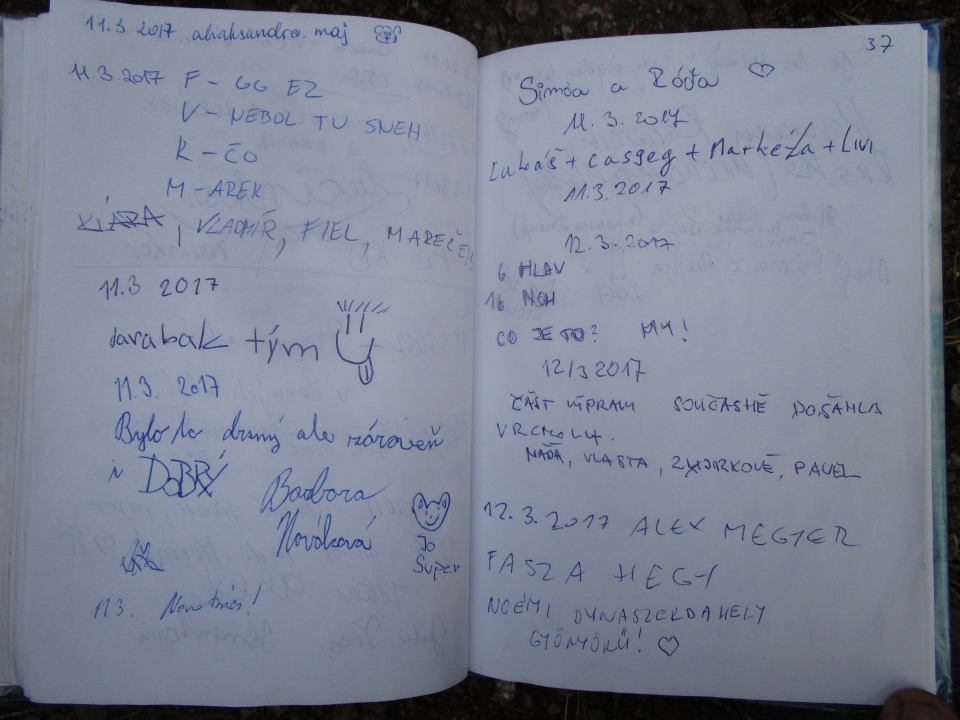 11.3 2017 aliaksandra. maj
11.3.2017 F - GG EZ
V - NEBOL TU SNEH
K - ČO
M - AREK
, VLADMÍŘ, FIEL, MAREČEK
11.3 2017
darabak tým
11.3. 2017
Bylo to drsný ale zároveň
i DOBRÝ
Barbora
Nováková
Jo
Super
11.3.
37
Simča a Róďa ♡
11.3.2017
Lukáš + casseg + Markéta + LIVI
11.3.2017
12.3.2017
6 HLAV
16 NOH
CO JE TO? MY!
12/3 2017
ČÁST VÝPRAVY SOUČASNĚ DOSÁHLA
VRCHOLU.
NAĎA, VLASTA, PAVEL
12.3.2017 ALEX MEGYER
FASZA HEGY
NOÉMI DUNASZERDAHELY
GYÖNYÖRŰ! ♡